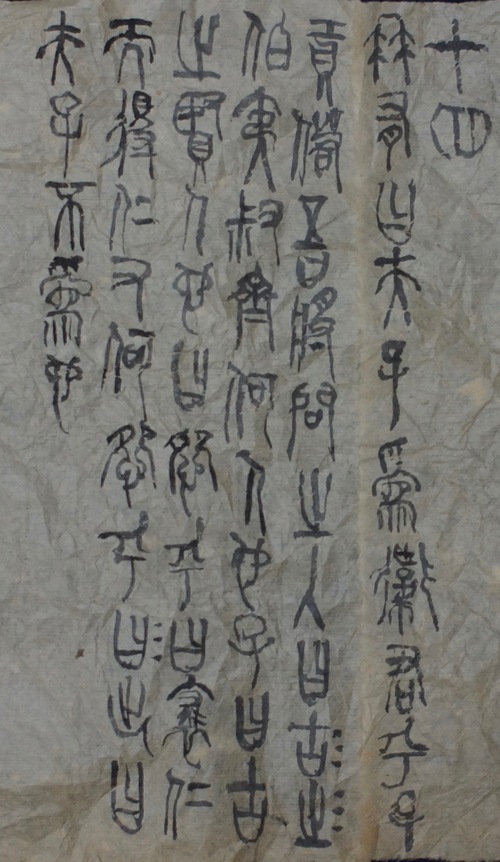 十四
冉有曰夫子爲衛君乎子
貢吾將問之入曰古之
伯夷叔齊何人也子曰古
之賢人也曰怨乎曰求仁
而得仁又何怨乎曰出曰
夫子不爲也